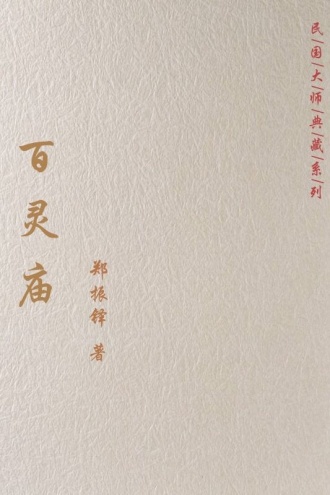 民国大师典藏系列
百灵庙
郑振铎 著